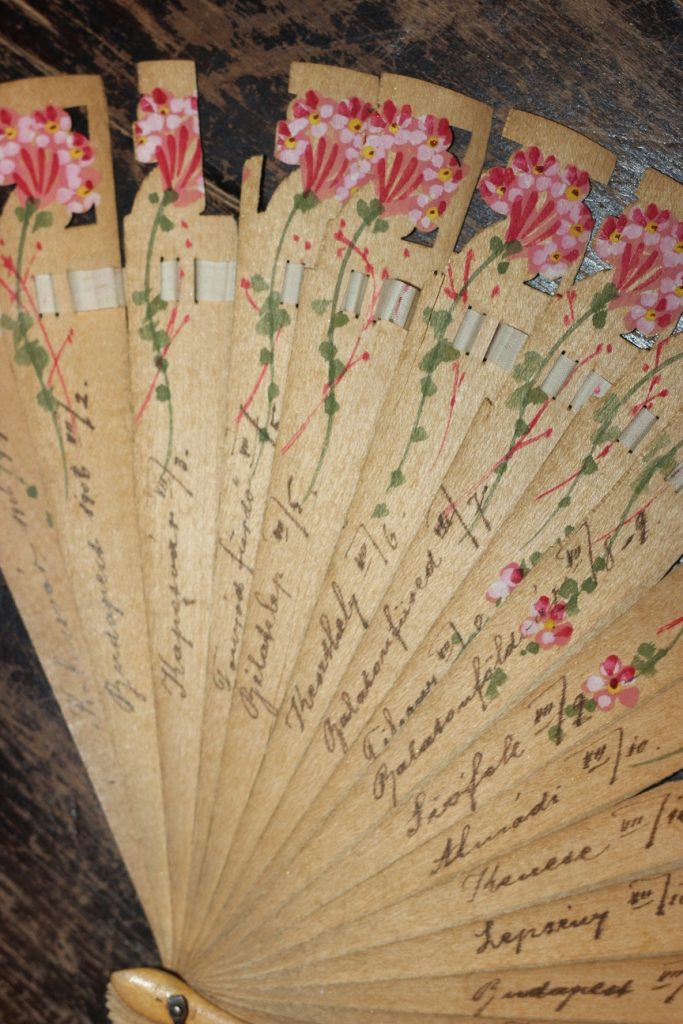 Budapest 1908 VII/2.
Kaposvár VII/3.
Tomaj fürdő
Bélatelep VII/5.
Keszthely VII/6.
Balatonfüred VII/7.
Tihany VII/8
Balatonföldvár VII/8-9.
Siófok VII/9
Almádi VII/10.
Kenese VII/10
Lepsény VII/10
Budapest VII